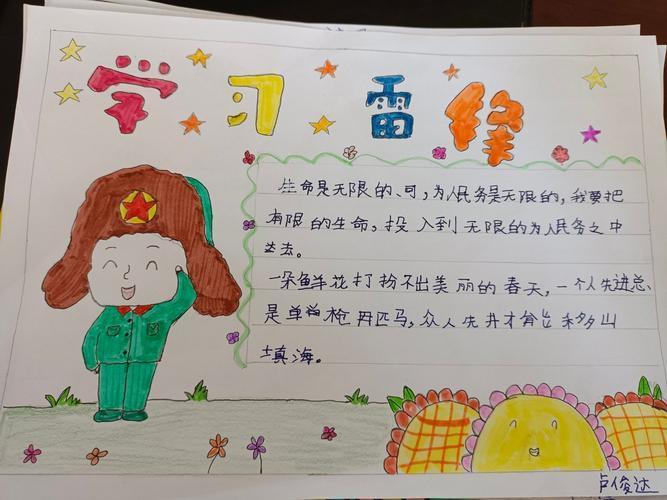 学习雷锋
生命是无限的、可，为人民务是无限的，我要把
有限的生命，投入到无限的为人民务之中
去去。
一朵鲜花打扮不出美丽的春天，一个人先进总
是单枪匹马，众人先进才能移山
填海。
卢俊达